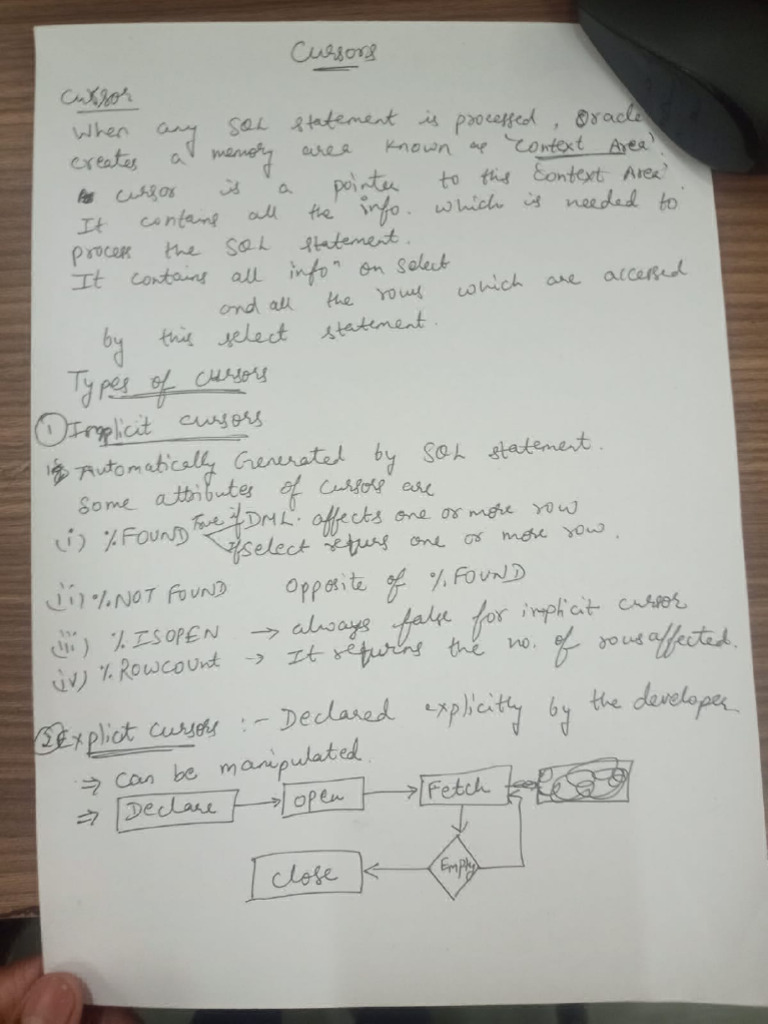 Cursors
Cursor
When any SQL statement is processed, Oracle
creates a memory area known as 'Context Area'.
cursor is a pointer to this Context Area'
It contains all the info. which is needed to
process the SQL statement.
It contains all infoⁿ on select
and all the rows which are accessed
by this select statement.
Types of cursors
① Implicit cursors
Automatically Generated by SQL statement.
Some attributes of cursors are
(i) %FOUND True if DML affects one or more row
if select returns one or more row.
(ii) %NOT FOUND Opposite of %FOUND
(iii) %ISOPEN → always false for implicit cursor
(iv) %ROWCOUNT → It returns the no. of rows affected.
② Explict cursors :- Declared explicitly by the developer.
⇒ can be manipulated.
⇒ Declare → open → Fetch
Empty
close